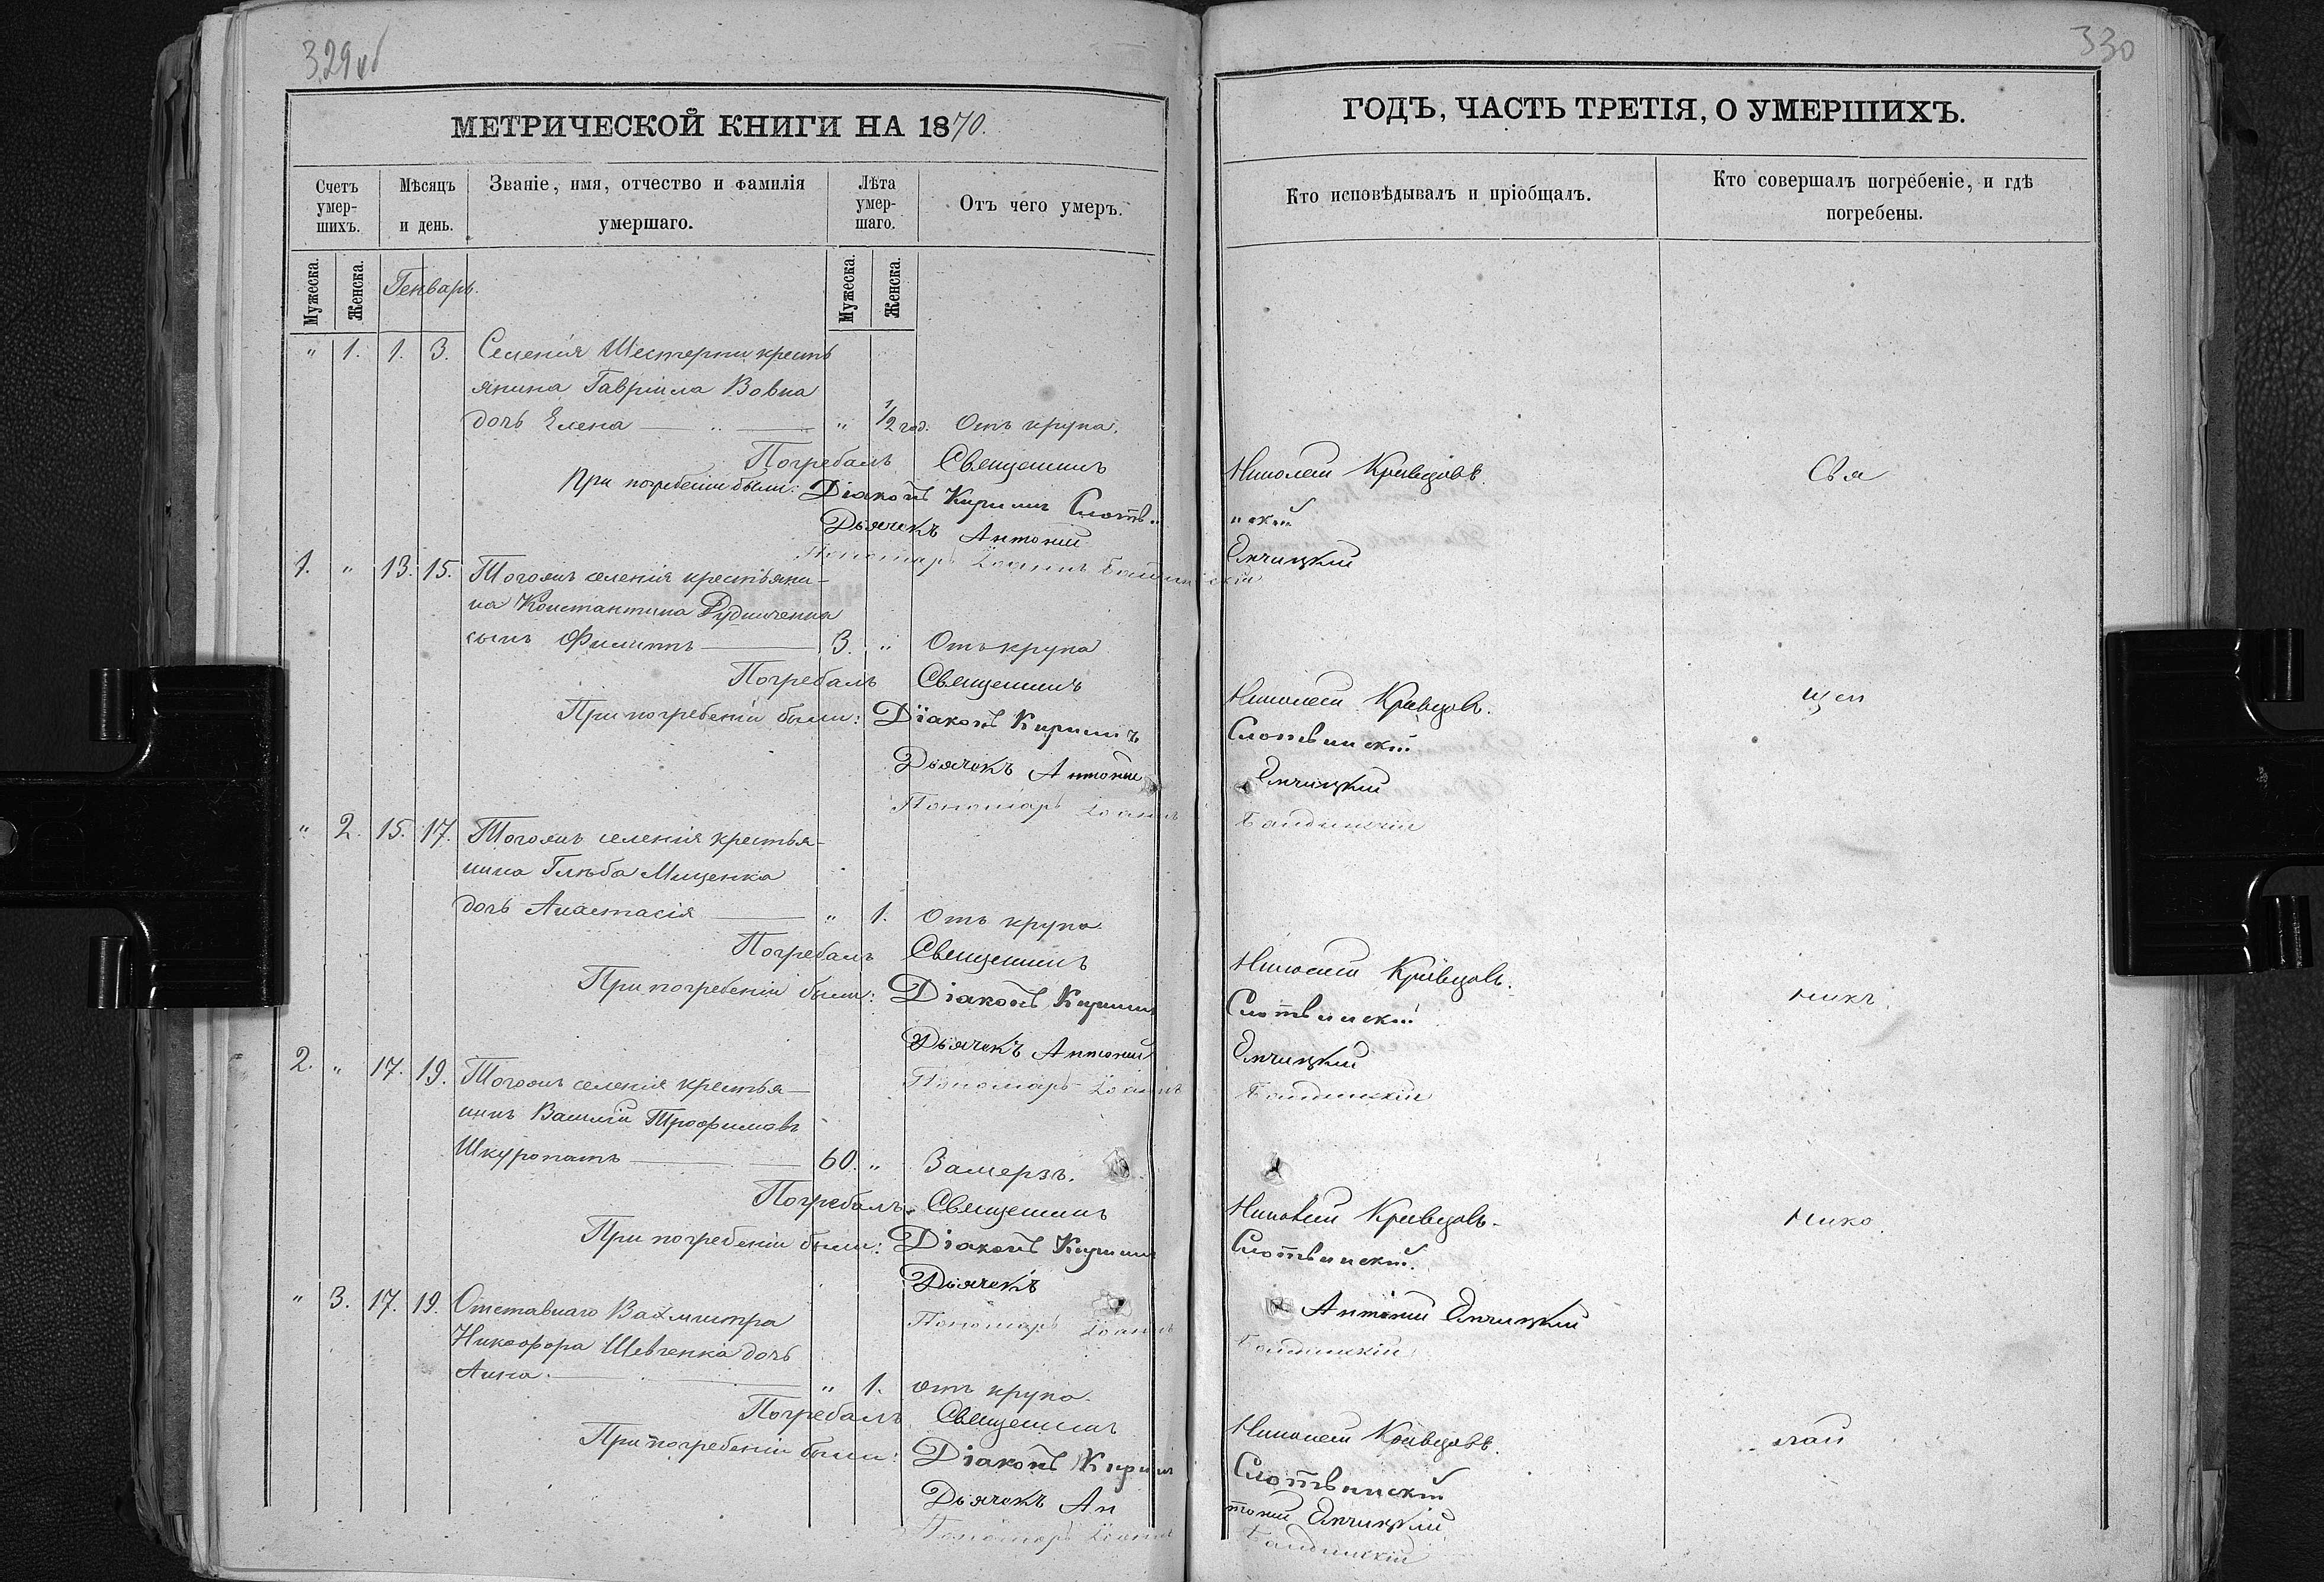 329 об
330
МЕТРИЧЕСКОЙ КНИГИ НА 1870.
ГОДЪ, ЧАСТЬ ТРЕТІЯ, О УМЕРШИХЪ.
Счетъ умер-шихъ.
Мѣсяцъ и день.
Званіе, имя, отчество и фамилія умершаго.
Лѣта умер-шаго.
Отъ чего умеръ.
Кто исповѣдывалъ и пріобщалъ.
Кто совершалъ погребеніе, и гдѣ погребены.
Мужеска.
Женска.
Генварь.
Мужеска.
Женска.
" 1. 1. 3. Селенія Шестерни кресть
янина Гавріила Вовка
дочь Елена — " — " 1/2 год. Отъ крупа.
Погребалъ Священникъ Николай Кривцовъ. Свя
При погребеніи были: Діаконъ Кирилъ Слотв-
инскій
Дьячекъ Антоній Ончицкій
Пономарь Іоаннъ
1. " 13. 15. Тогожъ селенія крестьяни-
на Константина Рудниченка
сынъ Филиппъ — 3. " Отъ крупа
Погребалъ Священникъ Николай Кривцовъ. щен
При погребеніи были: Діаконъ Кирилъ Слотвинскій
Дьячекъ Антоній Ончицкій
Пономарь Іоаннъ
" 2. 15. 17. Тогожъ селенія крестья-
нина Глѣба Мищенка
дочь Анастасія — " 1. Отъ крупа
Погребалъ Священникъ Николай Кривцовъ. никъ
При погребеніи были: Діаконъ Кирилъ Слотвинскій
Дьячекъ Антоній Ончицкій
Пономарь Іоаннъ
2. " 17. 19. Тогожъ селенія крестья-
нинъ Василій Трофимовъ
Шкуропатъ — 60. " Замерзъ.
Погребалъ Священникъ Николай Кривцовъ. Нико
При погребеніи были: Діаконъ Кирилъ Слотвинскій.
Дьячекъ Антоній Ончицкій
Пономарь Іоаннъ
" 3. 17. 19. Отставнаго Вахмистра
Никифора Шевченка дочь
Анна. — " 1. отъ крупа.
Погребалъ Священникъ Николай Кривцовъ. лай
При погребеніи были: Діаконъ Кирилъ Слотвинскій
Дьячекъ Ан
тоній Ончицкій
Пономарь Іоаннъ